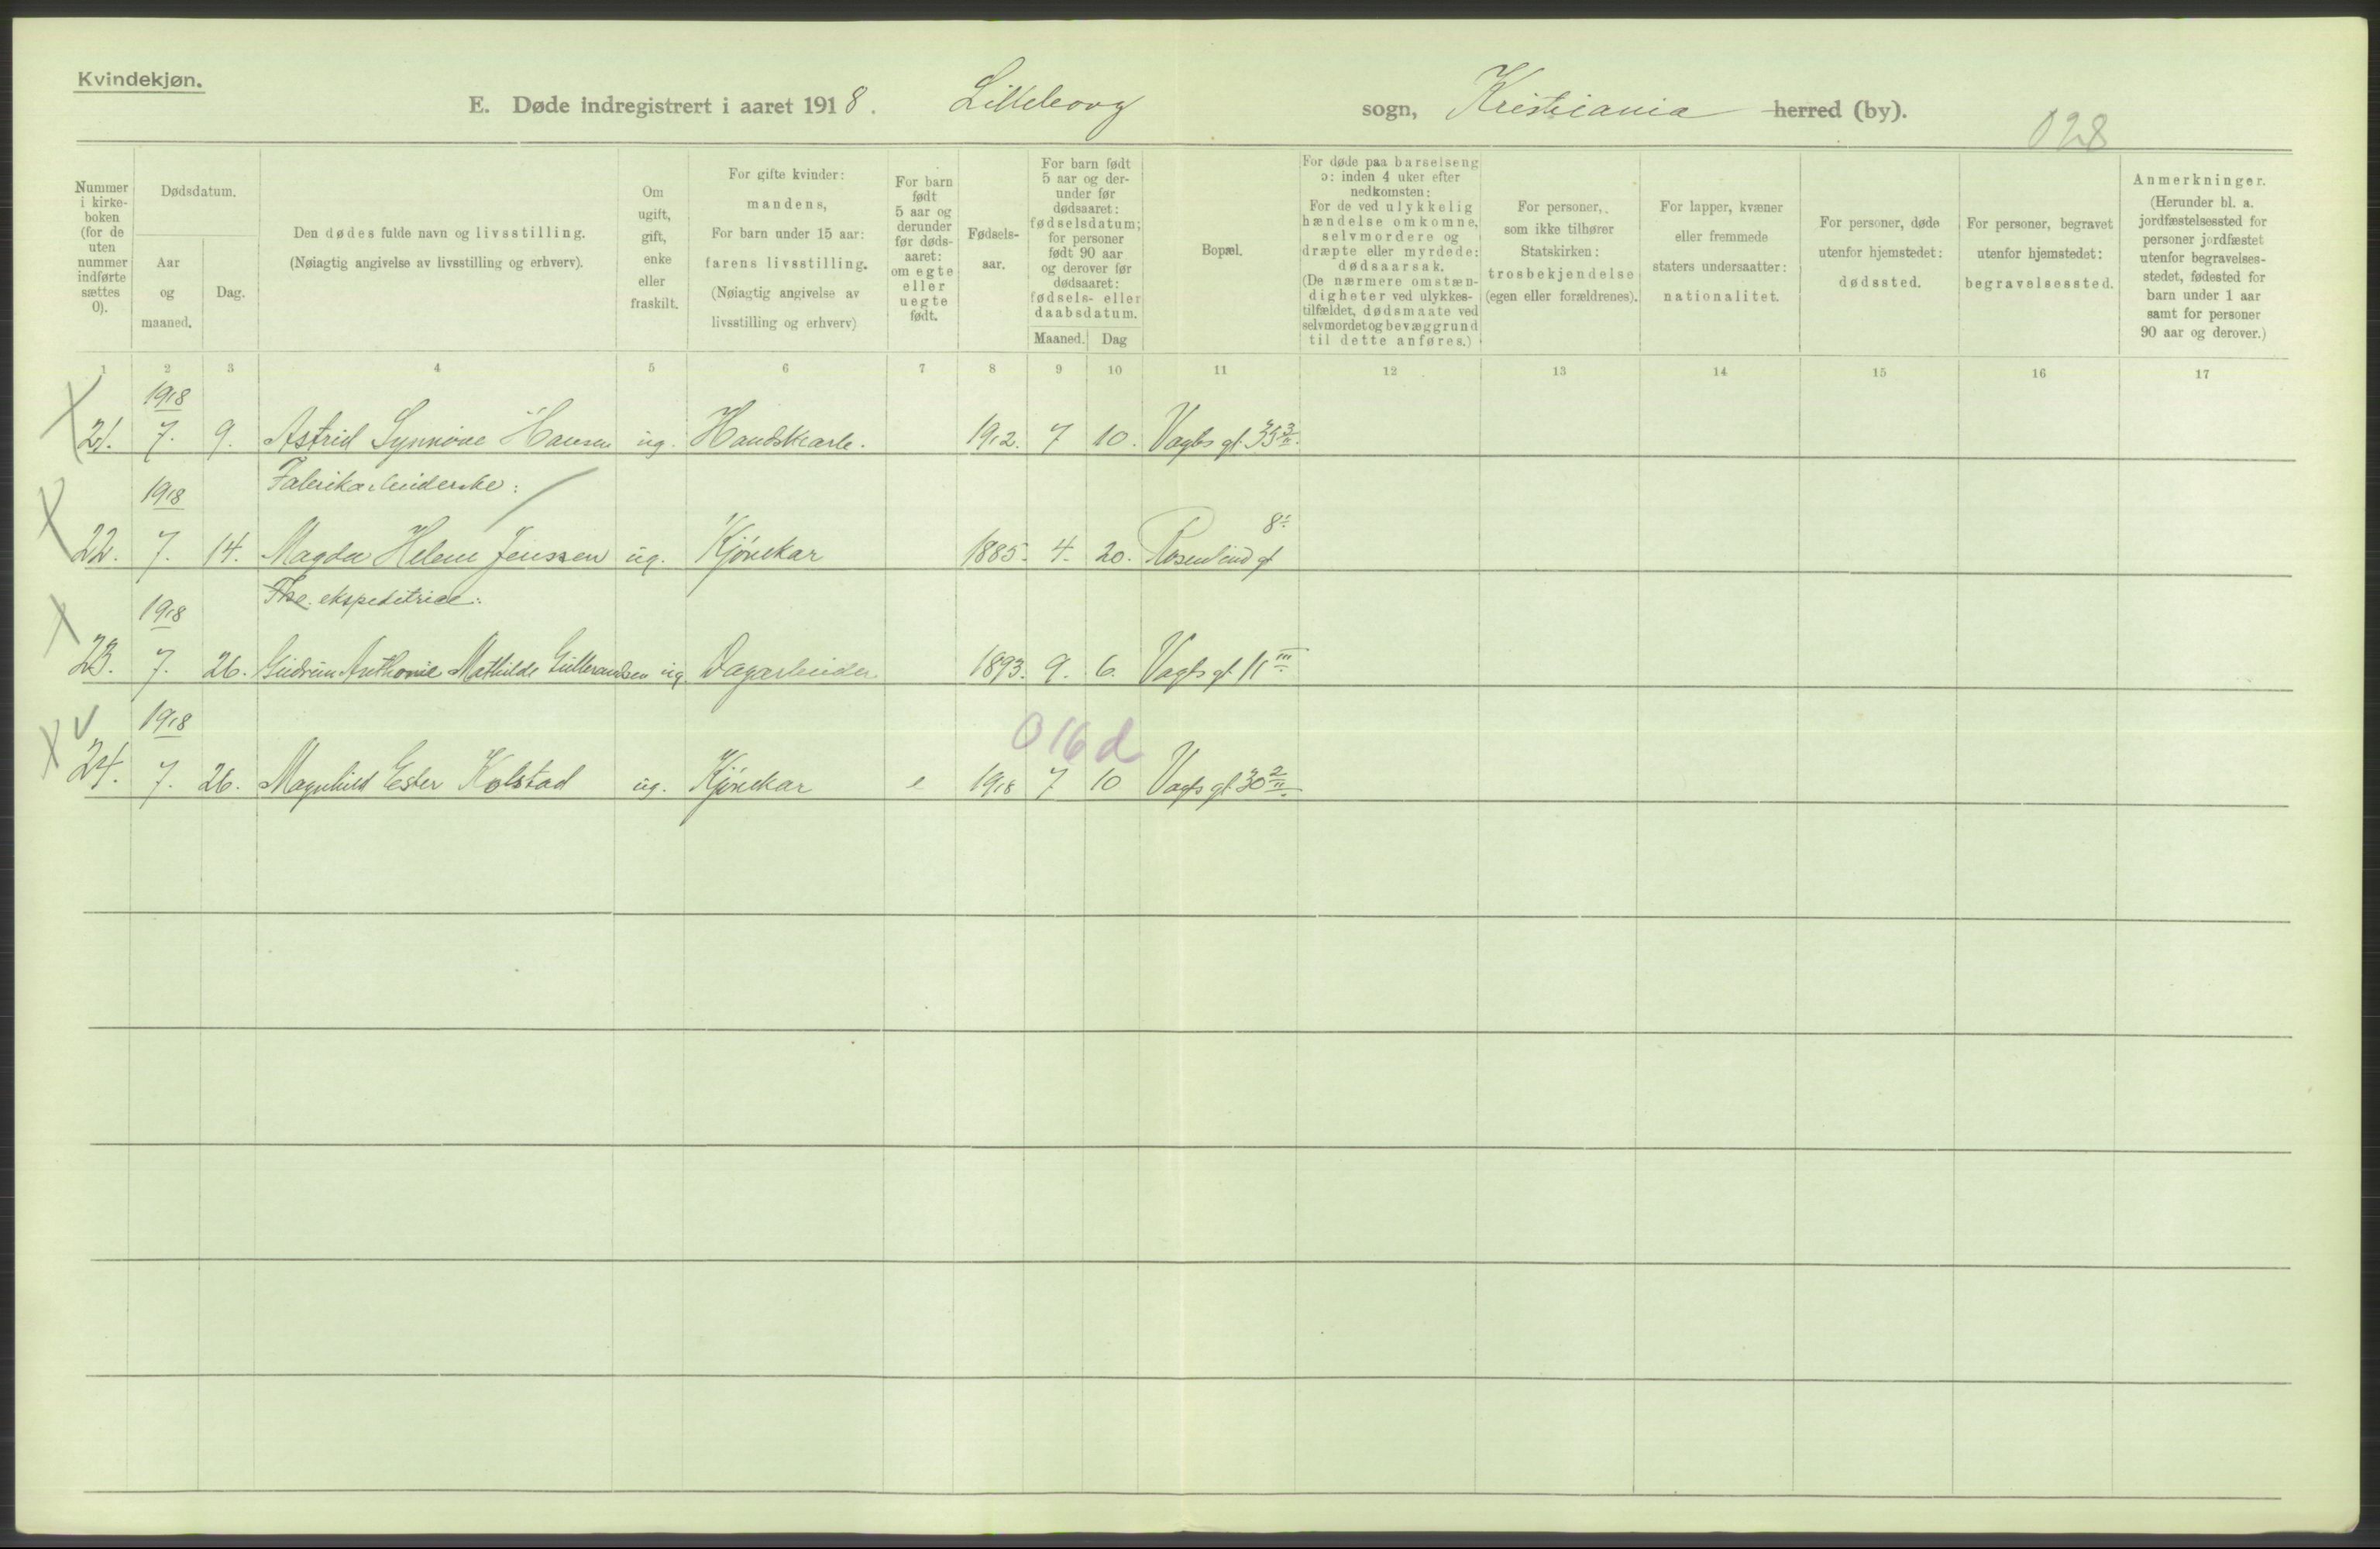 Kvindekjøn.
E. Døde indregistrert i aaret 1918. Lilleborg sogn, Kristiania herred (by).
028
Nummer i kirke-boken (for de uten nummer indførte sættes 0).
Dødsdatum.
Aar og maaned.
Dag.
Den dødes fulde navn og livsstilling.
(Nøiagtig angivelse av livsstilling og erhverv).
Om ugift, gift, enke eller fraskilt.
For gifte kvinder: mandens,
For barn under 15 aar: farens livsstilling.
(Nøiagtig angivelse av livsstilling og erhverv)
For barn født 5 aar og derunder før døds-aaret: om egte eller uegte født.
Fødsels-aar.
For barn født 5 aar og der-under før dødsaaret: fødselsdatum; for personer født 90 aar og derover før dødsaaret: fødsels- eller daabsdatum.
Maaned. Dag
Bopæl.
For døde paa barselseng ɔ: inden 4 uker efter nedkomsten:
For de ved ulykkelig hændelse omkomne, selvmordere og dræpte eller myrdede: dødsaarsak.
(De nærmere omstæn-digheter ved ulykkes-tilfældet, dødsmaate ved selvmordet og bevæggrund til dette anføres.)
For personer, som ikke tilhører Statskirken: trosbekjendelse (egen eller forældrenes).
For lapper, kvæner eller fremmede staters undersaatter: nationalitet.
For personer, døde utenfor hjemstedet: dødssted.
For personer, begravet utenfor hjemstedet: begravelsessted.
Anmerkninger.
(Herunder bl. a. jordfæstelsessted for personer jordfæstet utenfor begravelses-stedet, fødested for barn under 1 aar samt for personer 90 aar og derover.)
1 2 3 4 5 6 7 8 9 10 11 12 13 14 15 16 17
1918
21. 7. 9. Astrid Synnöve Hansen ug. Handskearb. 1912. 7 10. Vogts gt. 35 3/II.
1918 Fabrikarbeiderske:
22. 7. 14. Magda Helene Jenssen ug. Kjörekar 1885. 4. 20. Rosenlund gt 8I
1918 Fhe. ekspeditrice:
23. 7. 26. Gudrun Anthonie Mathilde Gulbrandsen ug. Dagarbeider 1893. 9. 6. Vogts gt. 11 III
1918
016d
24. 7. 26. Magnhild Ester Kolstad ug. Kjörekar e 1918 7 10 Vogts gt. 30 2/II.